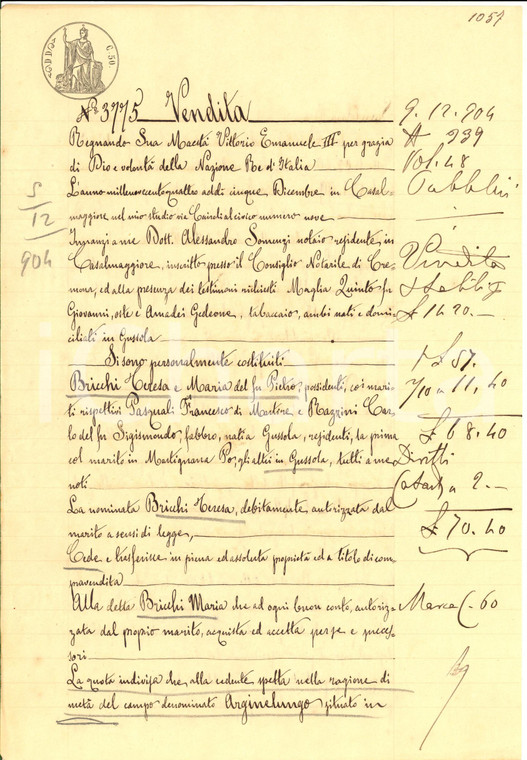 1051
C. 50
№ 3775 Vendita
Regnando Sua Maestà Vittorio Emanuele III per grazia
di Dio e volontà della Nazione Re d'Italia
L'anno millenovecentoquattro addì cinque Dicembre in Casal-
maggiore nel mio studio via Cairoli al civico numero nove
Innanzi a me Dott. Alessandro notaio residente in
Casalmaggiore, inscritto presso il Consiglio Notarile di Cre-
mona, ed alla presenza dei testimoni richiesti Maglia Quinto fu
Giovanni, oste e Amadei Gedeone, tabaccaio, ambi nati e domi-
ciliati in Gussola
Si sono personalmente costituiti
Bricchi Teresa e Maria del fu Pietro, possidenti, coi mari-
ti rispettivi Pasquali Francesco di e Razzini Car-
lo del fu Sigismondo, fabbro, nati a Gussola, residenti, la prima
col marito in Martignana Po, gli altri in Gussola, tutti a me
noti
La nominata Bricchi Teresa, debitamente autorizzata dal
marito a sensi di legge,
Cede e trasferisce in piena ed assoluta proprietà ed a titolo di com-
pravendita
Alla detta Bricchi Maria che ad ogni buon conto, autoriz-
zata dal proprio marito, acquista ed accetta per se e succes-
sori
La quota indivisa che alla cedente spetta nella ragione di
metà del campo denominato Arginelungo situato in
5
12
904
9. 12. 904
A 939
Vol. 48
Pubblici
Vendita
£ 1420.-
57.
7/10 a 11,40
£ 68.40
Diritti
Catast. a 2.-
£ 70.40
Marca C. 60